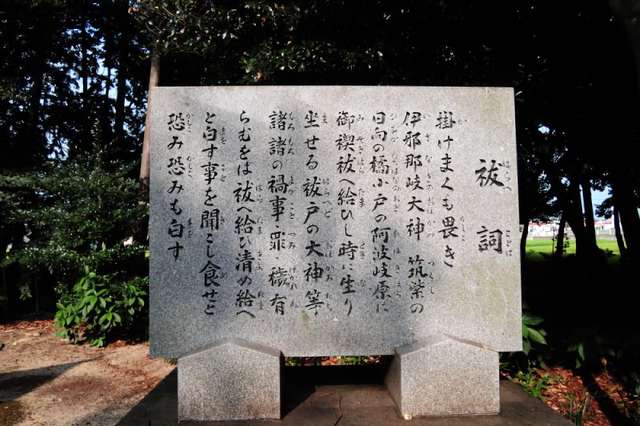 祓詞
掛けまくも畏き
伊邪那岐大神筑紫の
日向の橘小戸の阿波岐原に
御禊祓へ給ひし時に生り
坐せる祓戸の大神等
諸諸の禍事罪穢有
らむをば祓へ給ひ清め給へ
と白す事を聞こし食せと
恐み恐みも白す